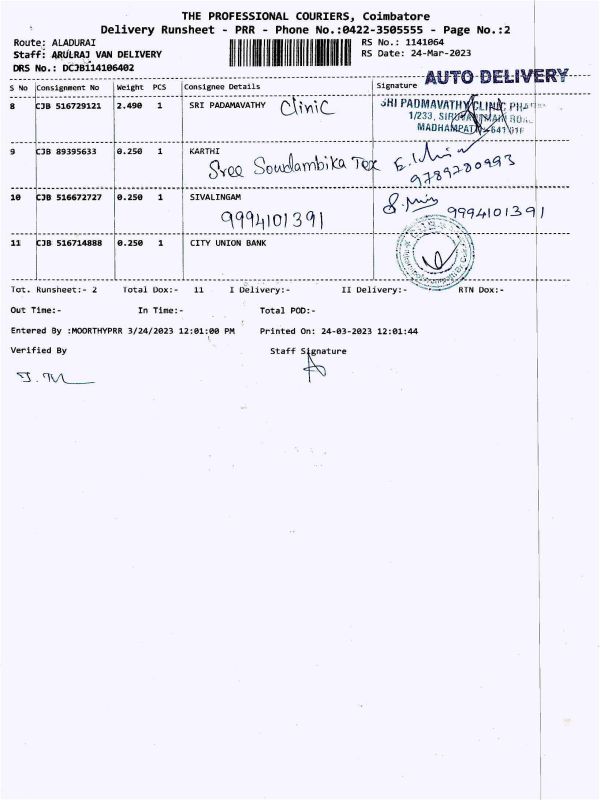 THE PROFESSIONAL COURIERS, Coimbatore
Delivery Runsheet - PRR - Phone No.:0422-3505555 - Page No.:2
Route: ALADURAI RS No.: 1141064
Staff: ARULRAJ VAN DELIVERY RS Date: 24-Mar-2023
DRS No.: DCJB114106402
AUTO DELIVERY
S No Consignment No Weight PCS Consignee Details Signature
8 CJB 516729121 2.490 1 SRI PADAMAVATHY Clinic SRI PADMAVATHY CLINIC
1/233,
MADHAMPATTY
9 CJB 89395633 0.250 1 KARTHI
Sree Soudambika Tex
9789280993
10 CJB 516672727 0.250 1 SIVALINGAM
9994101391 9994101391
11 CJB 516714888 0.250 1 CITY UNION BANK
Tot. Runsheet:- 2 Total Dox:- 11 I Delivery:- II Delivery:- RTN Dox:-
Out Time:- In Time:- Total POD:-
Entered By :MOORTHYPRR 3/24/2023 12:01:00 PM Printed On: 24-03-2023 12:01:44
Verified By Staff Signature